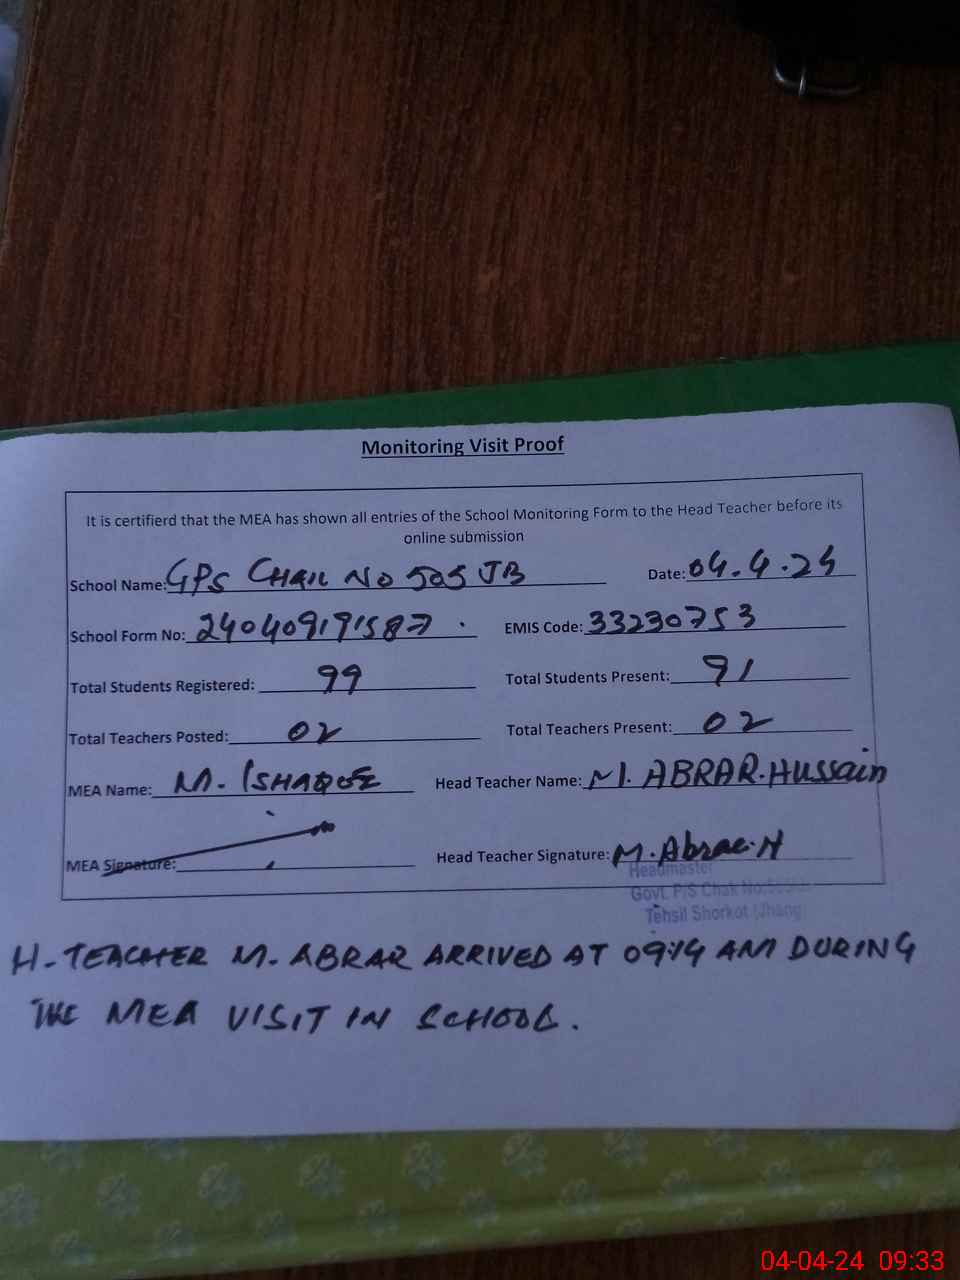 Monitoring Visit Proof
It is certifierd that the MEA has shown all entries of the School Monitoring Form to the Head Teacher before its
online submission
School Name: GPS CHAK NO 505 JB Date: 04.4.24
School Form No: 240409191587 EMIS Code: 33230753
Total Students Registered: 99 Total Students Present: 91
Total Teachers Posted: 02 Total Teachers Present: 02
MEA Name: M. ISHAQUE Head Teacher Name: M. ABRAR.HUssain
MEA Signature: Head Teacher Signature: M.Abrar.H
Headmaster
Govt. P/S Chak No.
Tehsil Shorkot (Jhang
H-TEACHER M. ABRAR ARRIVED AT 09:14 AM DURING
THE MEA VISIT IN SCHOOL.
04-04-24 09:33